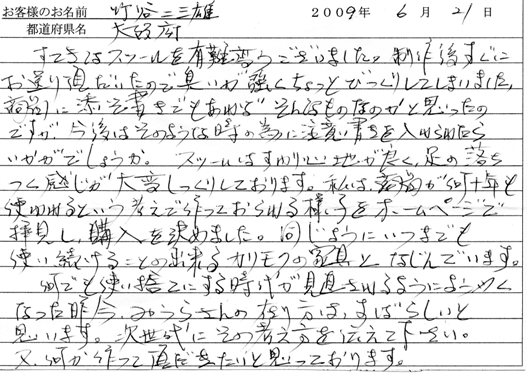 お客様のお名前 竹谷二三雄 2009年 6月 21日
都道府県名 大阪府
すてきなスツールを有難うございました。制作後すぐに
お送り頂だいたので臭いが強くちょっとびっくりしてしまいました。
に添え書きでもあればそんなものなのかと思ったの
ですが、今後はそのような時の為に注意書きを入れられたら
いかがでしょうか。 スツールはすわり心地が良く、足の落ち
つく感じが大変しっくりしております。私は、 が何十年も
使われるという考えで作っておられる様子をホームページで
拝見し購入を決めました。同じようにいつまでも
使い続けることの出来るカリモクの家具となじんでいます。
何でも使い捨てにする時代が見直されるようにようやく
なった昨今、 さんの在り方は、すばらしいと
思います。次世代にその考え方を伝えて下さい。
又、何か作って頂だきたいと思っております。